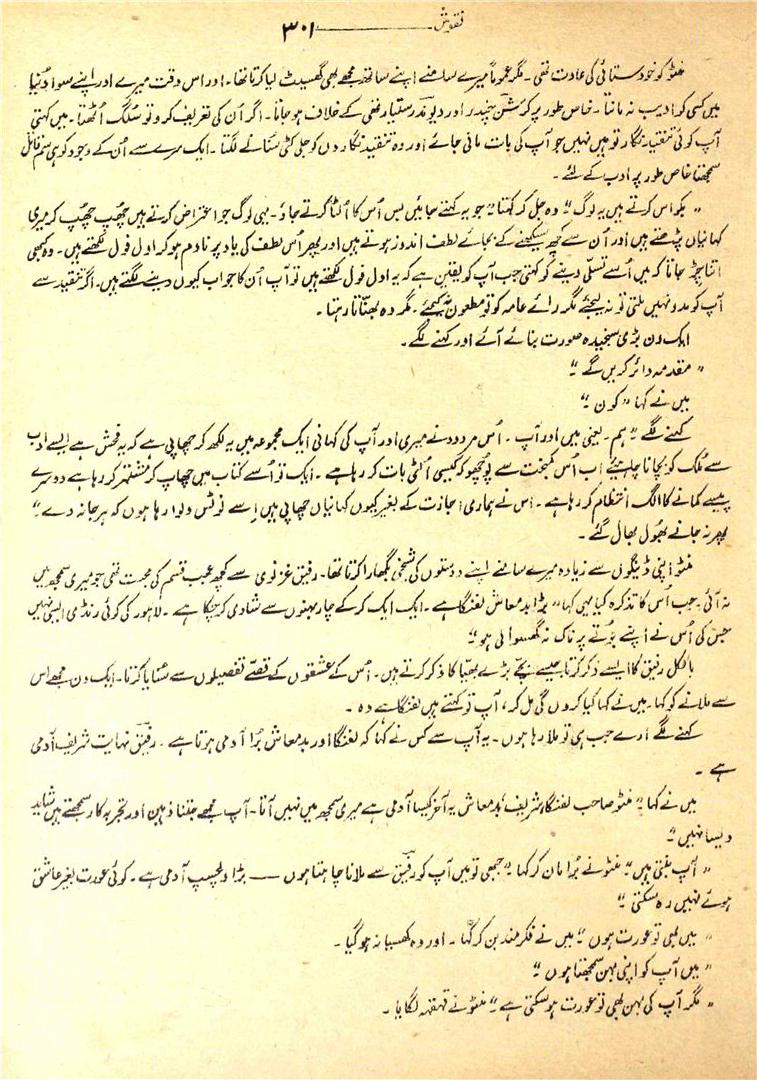 نقوش ——— ۳۰۱
منٹو کو خود ستائی کی عادت تھی۔ مگر عموماً میرے سامنے اپنے ساتھ مجھے بھی گھسیٹ لیا کرتا تھا۔ اور اس وقت میرے اور اپنے سوا دُنیا
میں کسی کو ادیب نہ مانتا۔ خاص طور پر کرشن چندر اور دیوندر ستیارتھی کے خلاف ہو جاتا۔ اگر اُن کی تعریف کرو تو سُلگ اُٹھتا۔ میں کہتی
آپ کوئی تنقید نگار تو ہیں نہیں جو آپ کی بات مانی جائے اور وہ تنقید نگاروں کو جلی کٹی سُنانے لگتا۔ ایک سرے سے اُن کے وجود کو ہی سم قاتل
سمجھتا خاص طور پر ادب کے لئے۔
" بکواس کرتے ہیں یہ لوگ " وہ جل کر کہتا " جو یہ کہتے جائیں بس اُس کا اُلٹا کرتے جاؤ۔ یہی لوگ جو اعتراض کرتے ہیں چھُپ چھُپ کر میری
کہانیاں پڑھتے ہیں اور اُن سے کچھ سیکھنے کے بجائے لطف اندوز ہوتے ہیں اور پھر اُس لطف کی یاد پر نادم ہو کر اول فول لکھتے ہیں۔ وہ کبھی
اتنا چڑ جاتا کہ میں اُسے تسلّی دینے کو کہتی جب آپ کو یقین ہے کہ یہ اول فول لکھتے ہیں تو آپ اُن کا جواب کیوں دینے لگتے ہیں۔ اگر تنقید سے
آپ کو مدد نہیں ملتی تو نہ لیجئے مگر رائے عامہ کو تو مطعون نہ کیجئے۔ مگر وہ بھنّاتا رہتا۔
ایک دن بڑی سنجیدہ صورت بنائے آئے اور کہنے لگے۔
" مقدمہ دائر کریں گے "
میں نے کہا " کون "
کہنے لگے " ہم۔ یعنی میں اور آپ۔ اُس مردود نے میری اور آپ کی کہانی ایک مجموعہ میں یہ لکھ کر چھاپی ہے کہ یہ فحش ہے ایسے ادب
سے ملک کو بچانا چاہیئے اب اُس کمبخت سے پوچھو کیسی اُلٹی بات کر رہا ہے۔ ایک تو اُسے کتاب میں چھاپ کر مشتہر کر رہا ہے دوسرے
پیسے کمانے کا الگ انتظام کر رہا ہے۔ اس نے ہماری اجازت کے بغیر کیوں کہانیاں چھاپی ہیں اِسے نوٹس دلوا رہا ہوں کہ ہرجانہ دے "
پھر نہ جانے بھُول بھال گئے۔
منٹو اپنی ڈینگوں سے زیادہ میرے سامنے اپنے دوستوں کی شیخی بگھارا کرتا تھا۔ رفیق غزنوی سے کچھ عجیب قسم کی محبت تھی جو میری سمجھ میں
نہ آئی۔ جب اُس کا تذکرہ کیا یہی کہا " بڑا بدمعاش لفنگا ہے۔ ایک ایک کر کے چار بہنوں سے شادی کر چکا ہے۔ لاہور کی کوئی رنڈی ایسی نہیں
جس کی اُس نے اپنے جُوتے پر ناک نہ گھسوائی ہو "
بالکل رفیق کا ایسے ذکر کرتا جیسے بچے بڑے بھیّا کا ذکر کرتے ہیں۔ اُس کے عشقوں کے قصّے تفصیلوں سے سُنایا کرتا۔ ایک دن مجھے اُس
سے ملانے کو کہا۔ میں نے کہا کیا کروں گی مل کر، آپ تو کہتے ہیں لفنگا ہے وہ۔
کہنے لگے ارے جب ہی تو ملا رہا ہوں۔ یہ آپ سے کس نے کہا کہ لفنگا اور بدمعاش بُرا آدمی ہوتا ہے۔ رفیق نہایت شریف آدمی
ہے۔
میں نے کہا " منٹو صاحب لفنگا، شریف، بدمعاش یہ آخر کیسا آدمی ہے میری سمجھ میں نہیں آتا۔ آپ مجھے جتنا ذہین اور تجربہ کار سمجھتے ہیں شاید
ویسا نہیں "
" آپ بنتی ہیں " منٹو نے بُرا مان کر کہا " جبھی تو میں آپ کو رفیق سے ملانا چاہتا ہوں —— بڑا دلچسپ آدمی ہے۔ کوئی عورت بغیر عاشق
ہوئے نہیں رہ سکتی "
" میں بھی تو عورت ہوں " میں نے فکر مند بن کر کہا۔ اور وہ کھسیانہ ہو گیا۔
" میں آپ کو اپنی بہن سمجھتا ہوں "
" مگر آپ کی بہن بھی تو عورت ہو سکتی ہے " منٹو نے قہقہہ لگایا۔